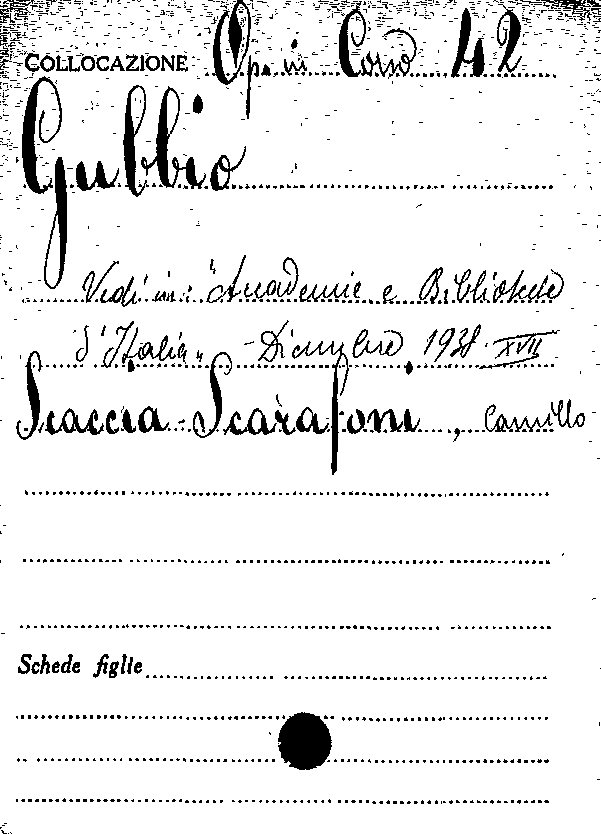 COLLOCAZIONE Op. in Corso 42
Gubbio
Vedi in: "Accademie e Biblioteche
d'Italia" - Dicembre 1938. XVII
Scaccia-Scarafoni, Camillo
Schede figlie